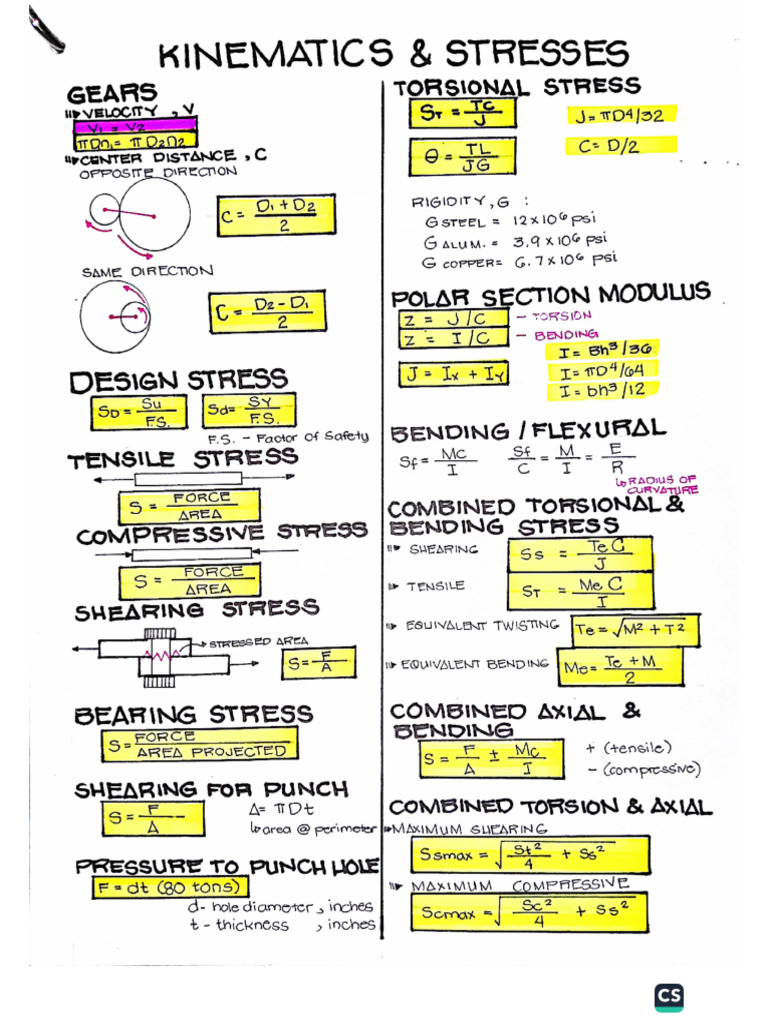 KINEMATICS & STRESSES
GEARS
VELOCITY , V
V1 = V2
πDn1 = πD2n2
CENTER DISTANCE , C
OPPOSITE DIRECTION
C = D1 + D2 / 2
SAME DIRECTION
C = D2 - D1 / 2
DESIGN STRESS
SD = Su / F.S.
Sd = SY / F.S.
F.S. - Factor of Safety
TENSILE STRESS
S = FORCE / AREA
COMPRESSIVE STRESS
S = FORCE / AREA
SHEARING STRESS
STRESSED AREA
S = F / A
BEARING STRESS
S = FORCE / AREA PROJECTED
SHEARING FOR PUNCH
S = F / A
A = πDt
area @ perimeter
PRESSURE TO PUNCH HOLE
F = dt (80 tons)
d - hole diameter , inches
t - thickness , inches
TORSIONAL STRESS
ST = TC / J
J = πD4/32
θ = TL / JG
C = D/2
RIGIDITY , G :
G STEEL = 12 x 10^6 psi
G ALUM. = 3.9 x 10^6 psi
G COPPER = 6.7 x 10^6 psi
POLAR SECTION MODULUS
Z = J/C - TORSION
Z = I/C - BENDING
I = Bh^3/36
J = Ix + Iy
I = πD^4/64
I = bh^3/12
BENDING / FLEXURAL
Sf = MC / I
Sf / C = M / I = E / R
RADIUS OF
CURVATURE
COMBINED TORSIONAL &
BENDING STRESS
SHEARING
Ss = TeC / J
TENSILE
ST = MeC / I
EQUIVALENT TWISTING
Te = √M² + T²
EQUIVALENT BENDING
Me = Te + M / 2
COMBINED AXIAL &
BENDING
S = F / A ± Mc / I
+ (tensile)
- (compressive)
COMBINED TORSION & AXIAL
MAXIMUM SHEARING
Ssmax = √St² / 4 + Ss²
MAXIMUM COMPRESSIVE
Scmax = √Sc² / 4 + Ss²
CS